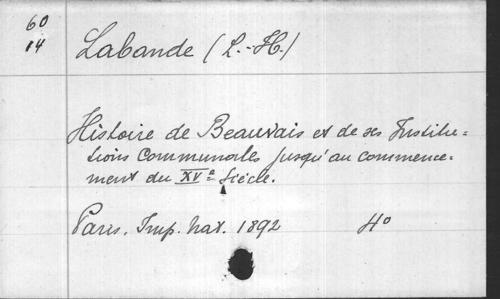 60
14
Labande (L.-H.)
Histoire de Beauvais et de ses Institu-
tions Communales jusqu'au commence-
ment du XVe Siècle.
Paris. Imp. Nat. 1892 4o